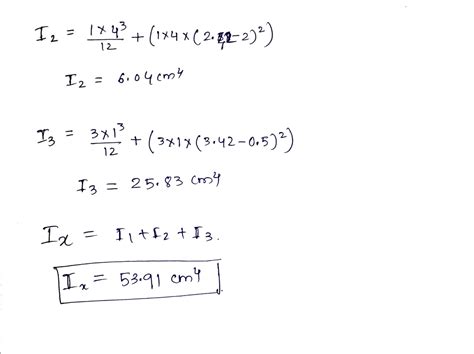 I₂ = 1×4³/12 + (1×4×(2. -2)²)
I₂ = 6.04 cm⁴
I₃ = 3×1³/12 + (3×1×(3.42-0.5)²)
I₃ = 25.83 cm⁴
Ix = I₁+I₂+I₃.
Ix = 53.91 cm⁴